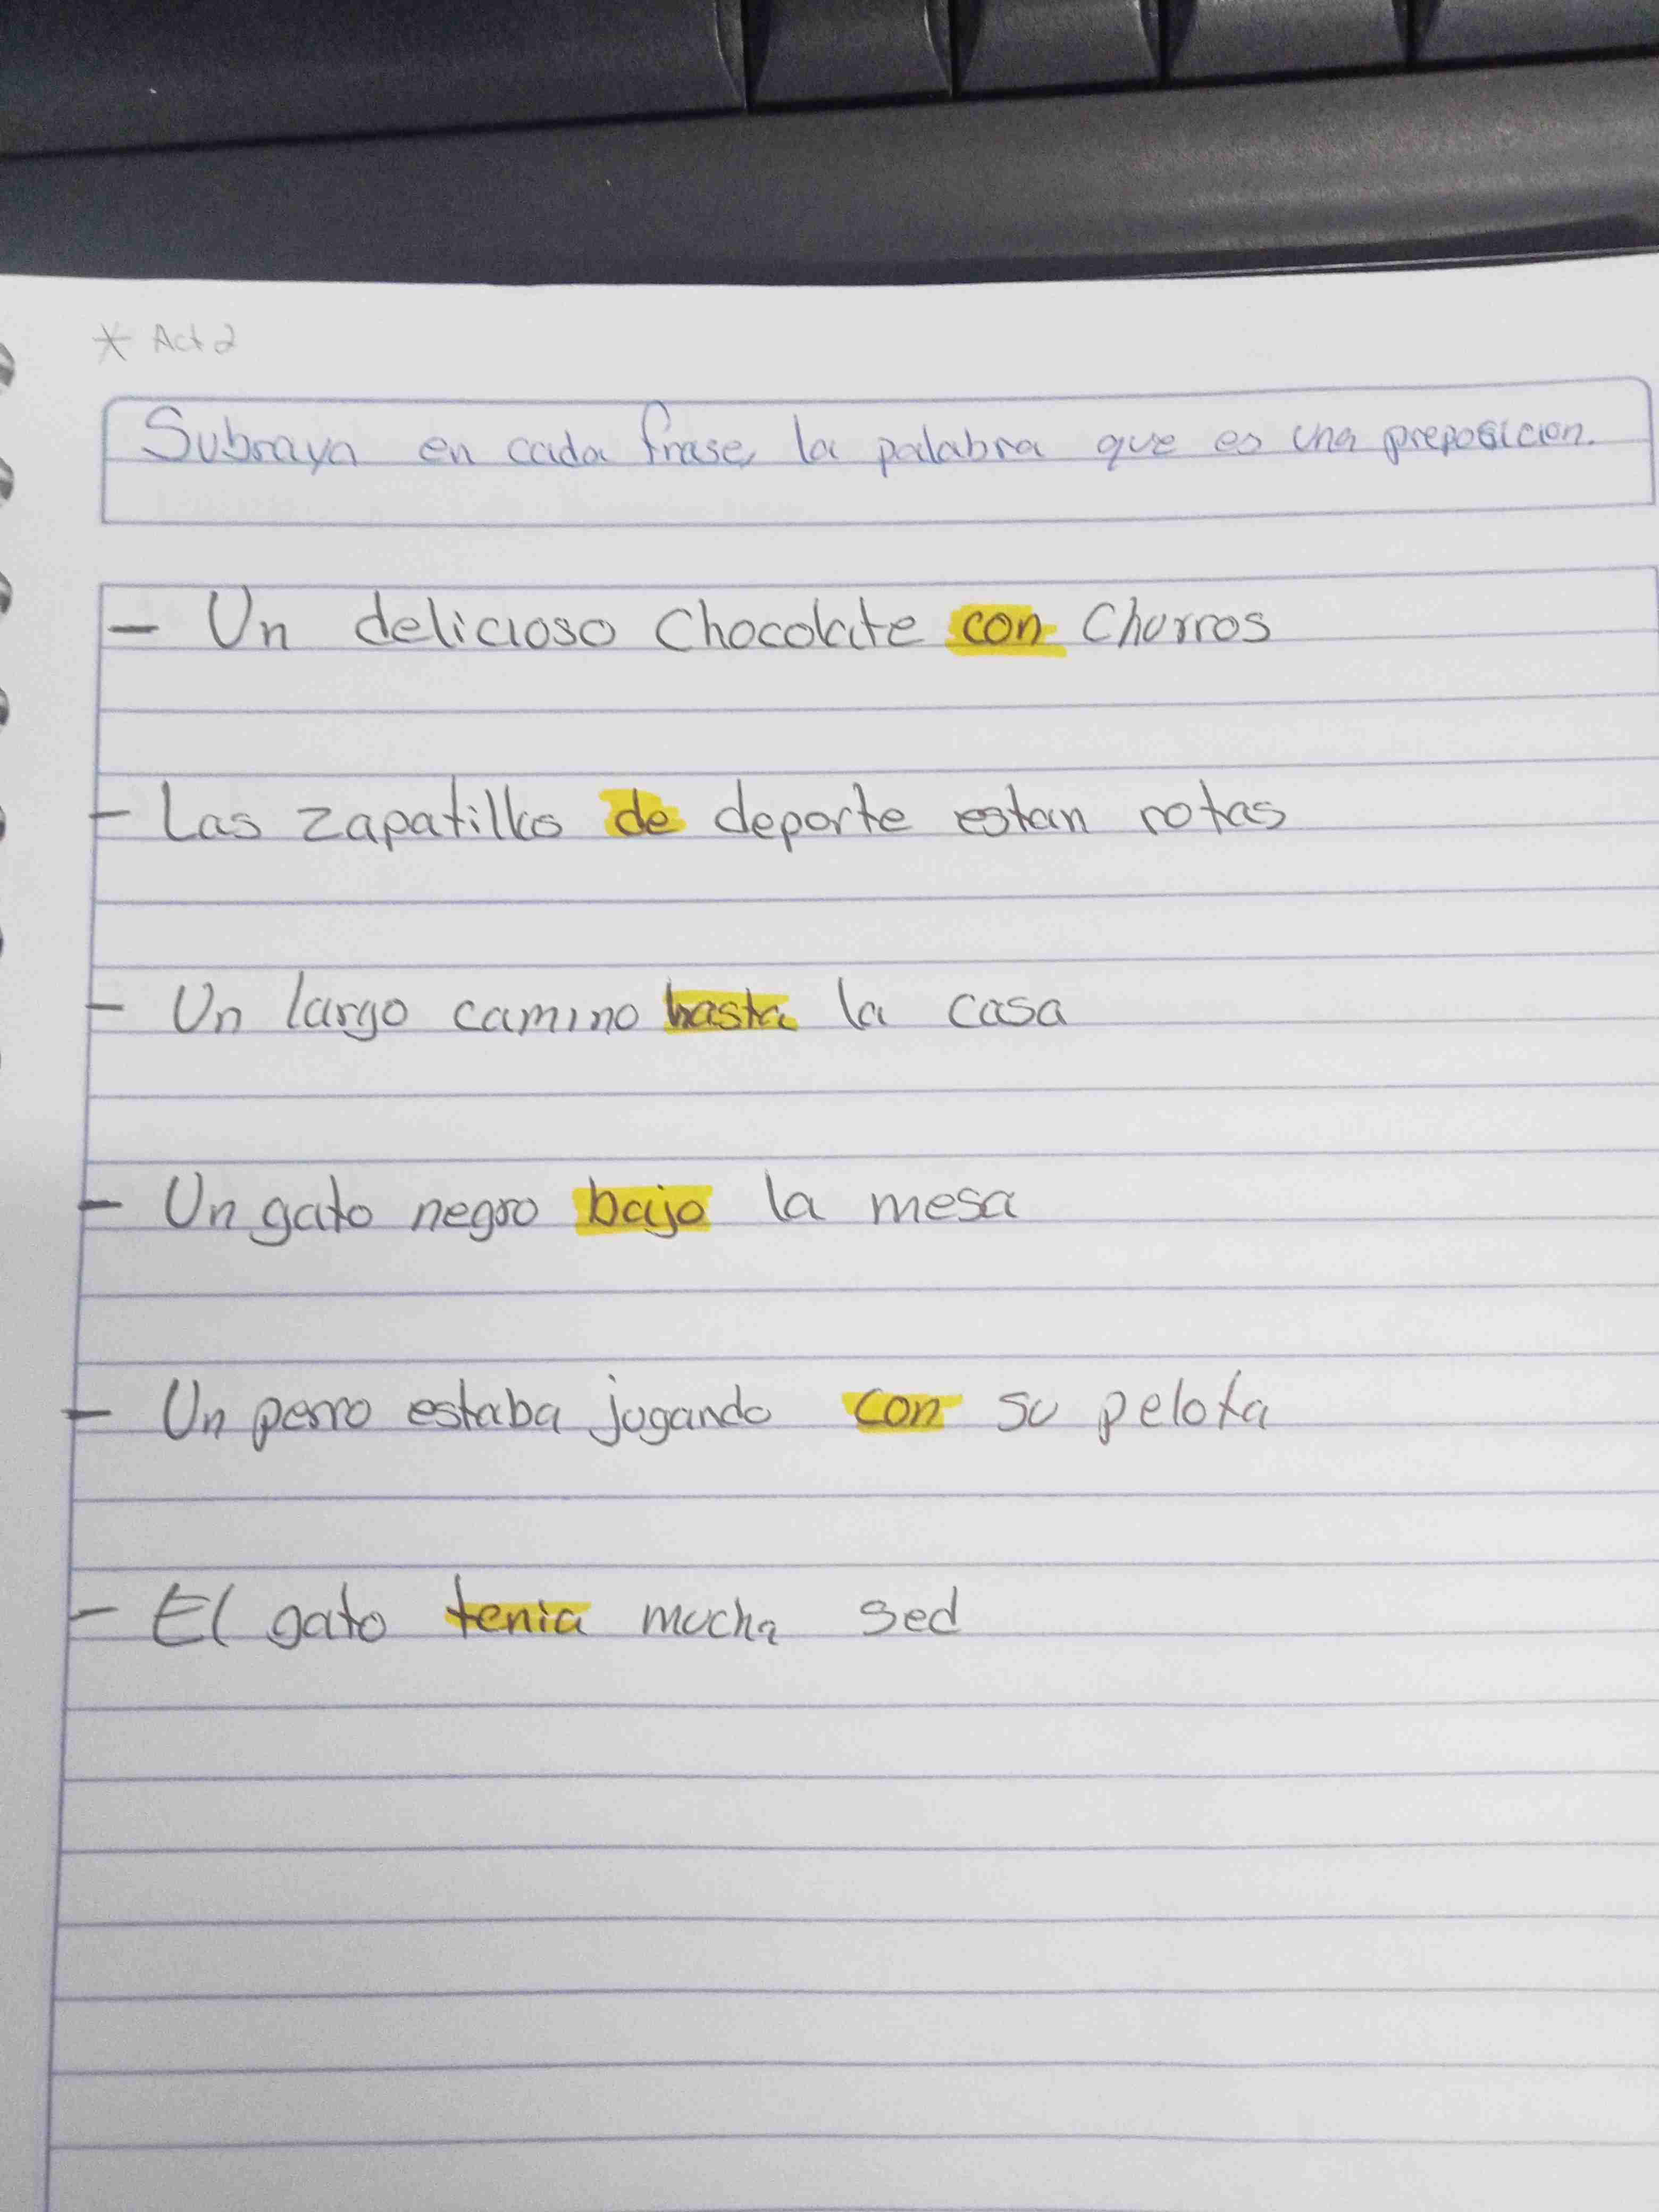 * Act 2
Subraya en cada frase, la palabra que es una preposicion.
- Un delicioso Chocolate con Churros
- Las zapatillas de deporte estan rotas
- Un largo camino hasta la casa
- Un gato negro bajo la mesa
- Un perro estaba jugando con su pelota
- El gato tenia mucha sed